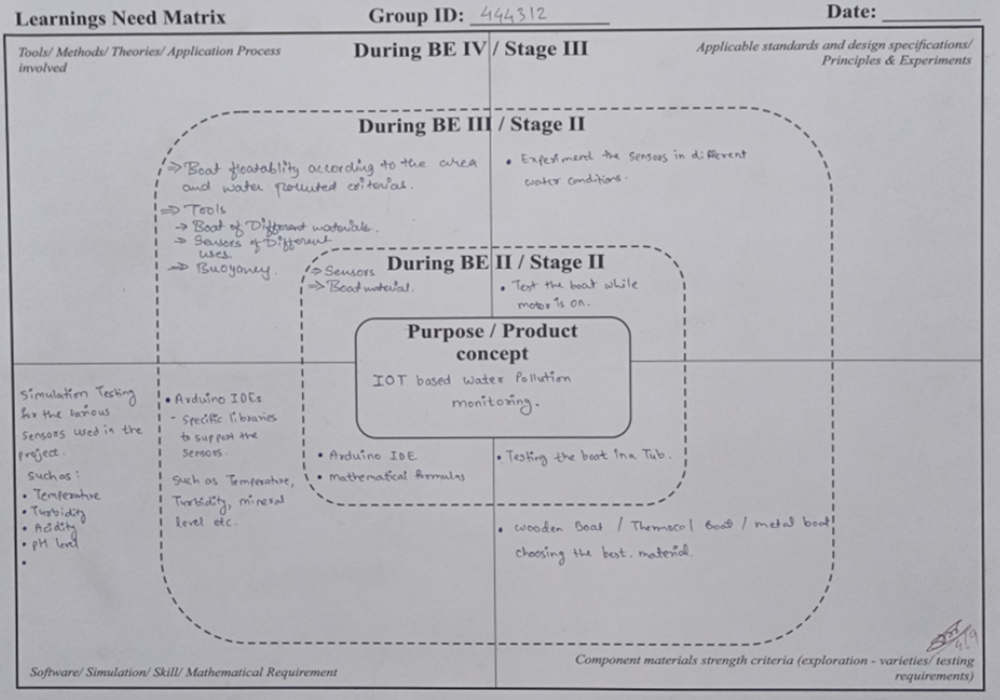 Learnings Need Matrix
Group ID: 444312
Date:
Tools/ Methods/ Theories/ Application Process
involved
During BE IV / Stage III
Applicable standards and design specifications/
Principles & Experiments
During BE III / Stage II
⇒ Boat floatablity according to the area
and water polluted criterial.
⇒ Tools
→ Boat of Different materials.
→ Sensors of Different
uses.
⇒ Buoyancy.
• Experimend the sensors in different
water conditions.
During BE II / Stage II
⇒ Sensors
⇒ Boat material.
• Test the boat while
motor is on.
Purpose / Product
concept
IOT based Water Pollution
monitoring.
Simulation Testing
for the various
sensors used in the
project.
such as :
• Temperature
• Turbidity
• Acidity
• pH level
•
• Arduino IDEs
- Specific libraries
to support the
sensors.
Such as Temperature,
Turbidity, mineral
level etc.
• Arduino IDE
• mathematical formulas
• Testing the boat in a Tub.
• wooden Boat / Thermocol Boat / metal boat
choosing the best. material.
4/9
Software/ Simulation/ Skill/ Mathematical Requirement
Component materials strength criteria (exploration - varieties/ testing
requirements)